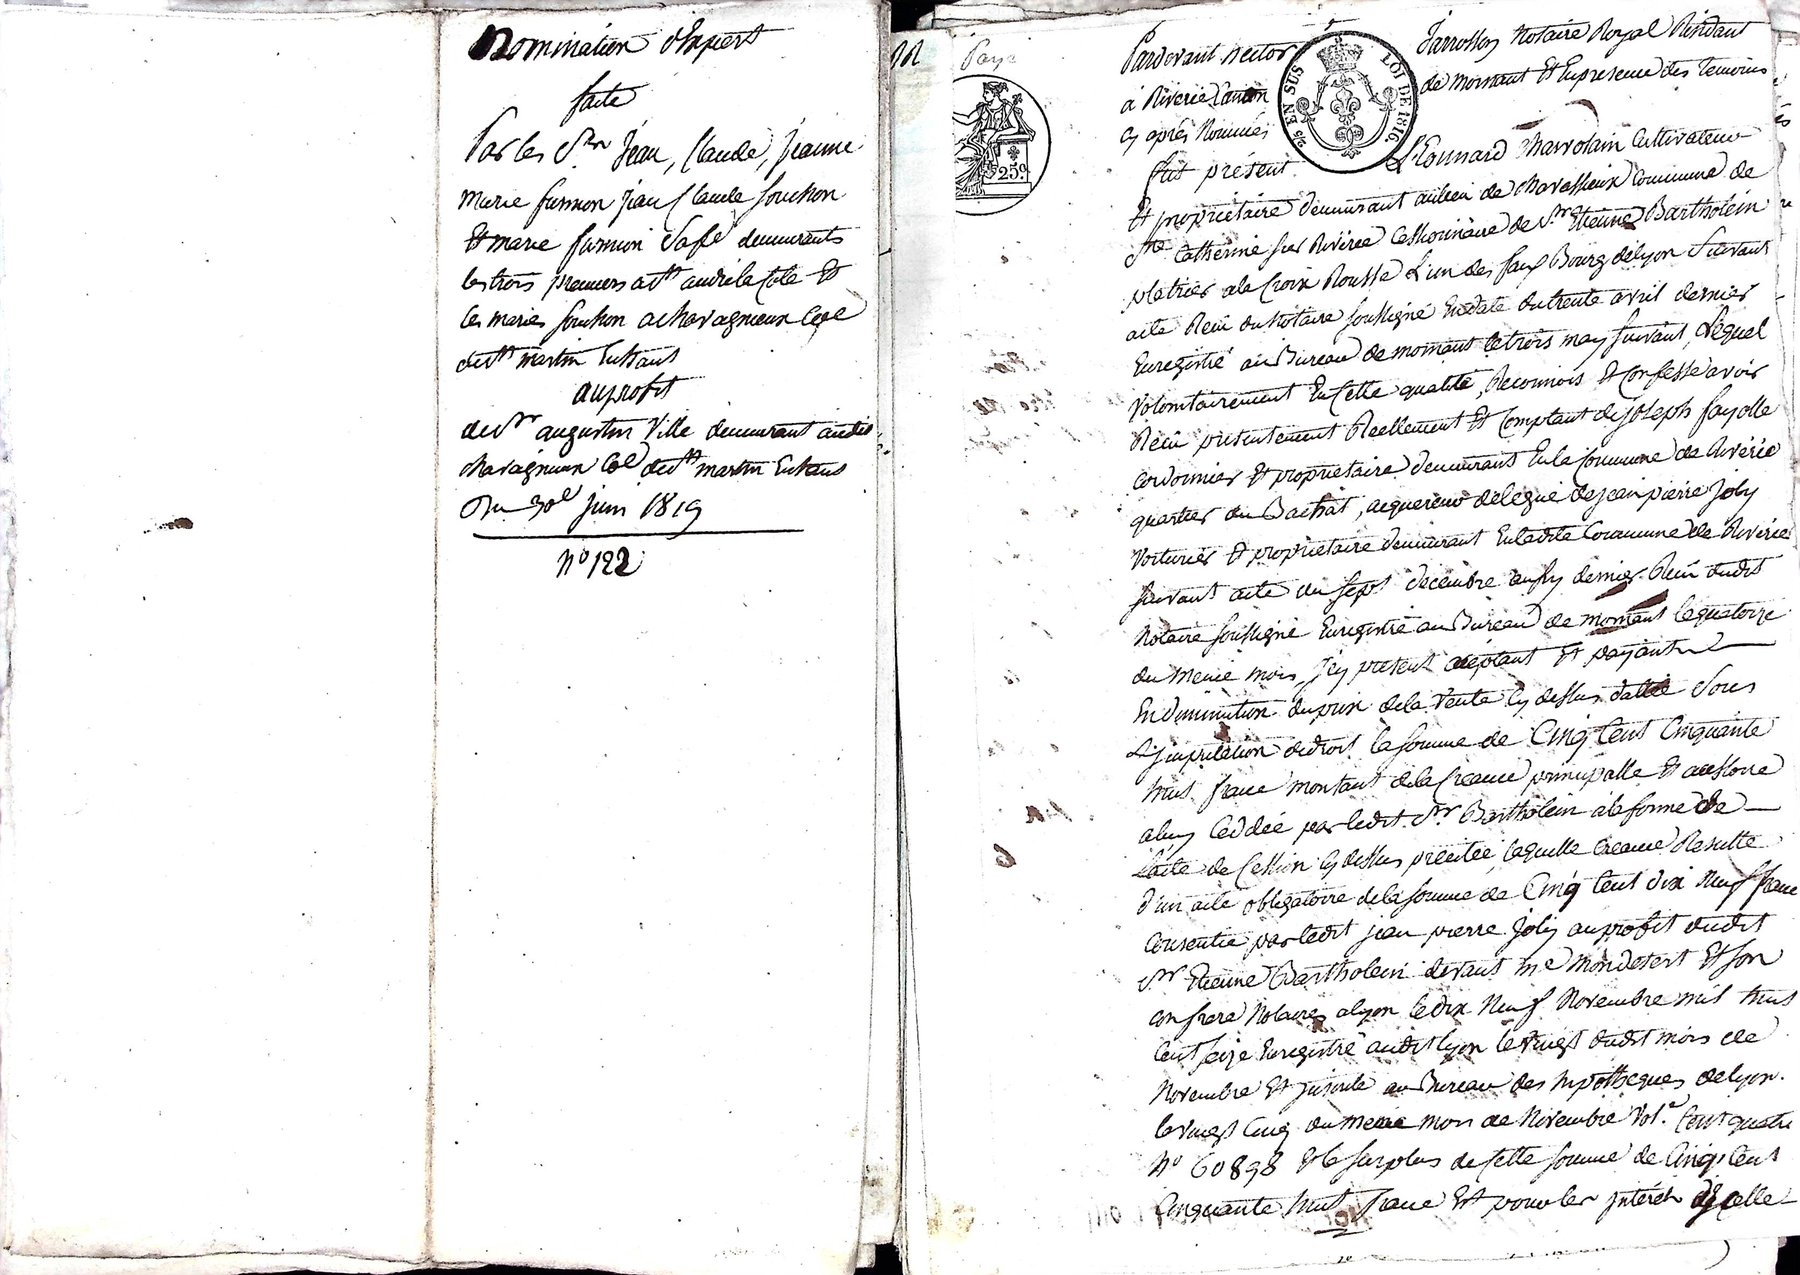 Nomination d'Expert
faite
Par les Srs Jean, Claude, Jeanne
Marie jean Claude Souchon
Et marie demeurants
les trois premiers a St andré la Cote Et
les maries Souchon a chavagnieux
de St martin Enhaut
au profit
de Sr augustin Ville demeurant audit
chavagnieux Cne de St martin Enhaut
Du 30e juin 1819
No 122
Pardevant hector Jarrosson Notaire Royal Résidant
à Riverie Canton de mornant Et En presence des temoins
cy après Nommés
fut présent Léonnard Charvolain Cultivateur
Et propriétaire demeurant au lieu de chavassieux Commune de
Ste Catherine sur Riverie Cessionnaire de Sr Etienne Bartholein
platrier a la Croix Rousse L'un des faux Bourg de lyon Suivant
acte Reçu du Notaire Soussigné En date du trente avril dernier
Enregistré au Bureau de mornant le trois may suivant, Lequel
volontairement En Cette qualité, Reconnois Et Confesse avoir
Reçu presentement Réellement Et Comptant de joseph fayolle
Cordonnier Et propriétaire demeurant En la Commune de Riverie
quartier du Bachat, acquereur délégué de jean pierre joly
voiturier Et propriétaire demeurant En ladite Commune de Riverie
suivant acte du Sept decembre dernier Reçu dudit
Notaire soussigné Enregistré au Bureau de mornant le quatorze
du même mois, Jcy present aceptant Et payant
En diminution du prix de la Vente cy dessus dattée Sous
L'jmputation de droit la somme de Cinq Cent Cinquante
huit franc montant de la Creance principalle Et accessoire
a luy Ceddée par ledit Sr Bartholein a la forme de
L'acte de Cession cy dessus précitée, laquelle Creance Resulte
d'un acte obligatoire de la somme de Cinq Cent dix Neuf franc
Consentie par ledit jean pierre joly au profit dudit
Sr Etienne Bartholein devant me Mondesert Et son
confrere Notaires a lyon le dix Neuf Novembre mil huit
Cent Seize Enregistré audit lyon le vingt dudit mois de
Novembre Et jnscrite au Bureau des hypotheques de lyon
le vingt Cinq du meme mois de Novembre Vol.e Cent quatre
No 60898 Et le surplus de Cette somme de Cinq Cent
Cinquante huit franc Est pour les jnterets de Celle
25c.
EN SUS LOI DE 1816